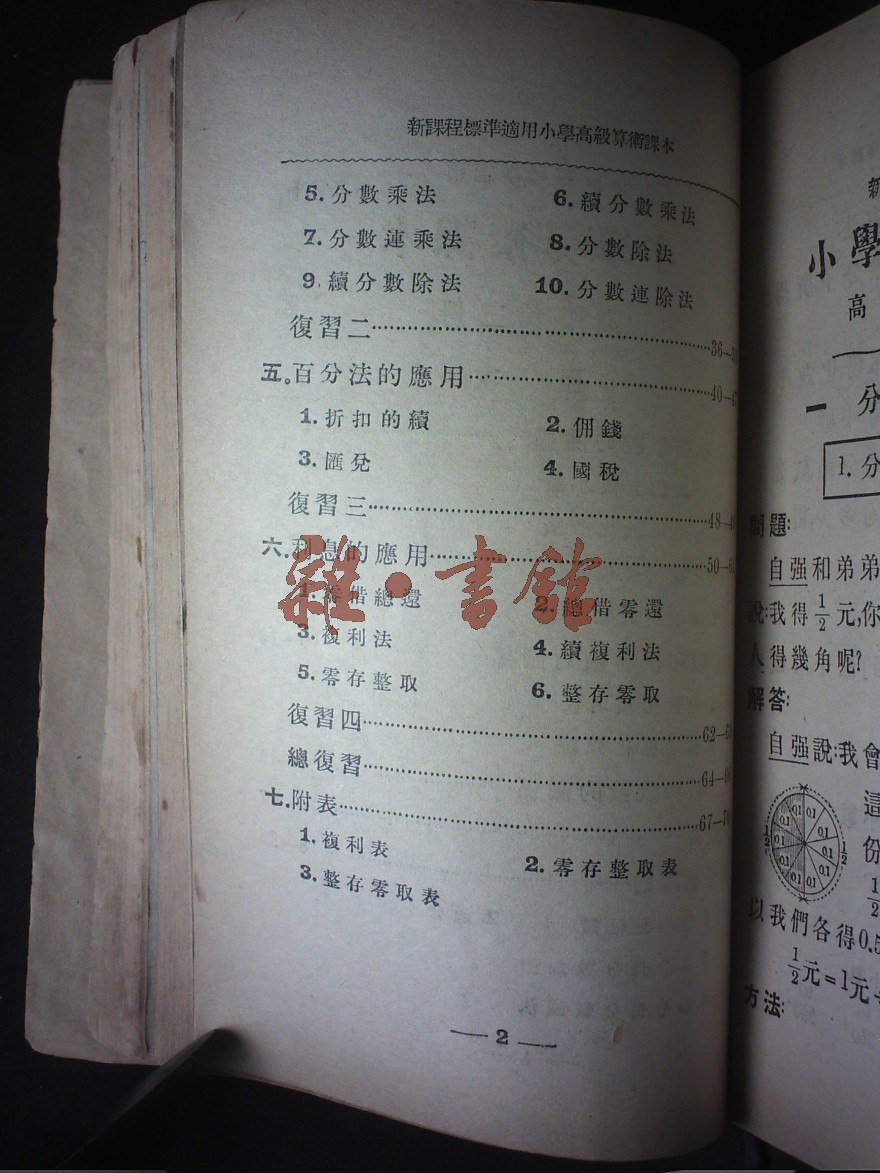 新課程標準適用小學高級算術課本
5. 分數乘法 6. 續分數乘法
7. 分數連乘法 8. 分數除法
9. 續分數除法 10. 分數連除法
復習二……36—
五。百分法的應用……40—4
1. 折扣的續 2. 佣錢
3. 匯兌 4. 國稅
復習三……48—4
六.利息的應用……50—6
1. 零借總還 2. 總借零還
3. 複利法 4. 續複利法
5. 零存整取 6. 整存零取
復習四……62—63
總復習……64—6
七.附表……67—7
1. 複利表 2. 零存整取表
3. 整存零取表
— 2 —
雜·書館
新
小學
高
一 分
1. 分
問題:
自强和弟弟
說:我得1/2元,你
人得幾角呢?
解答:
自强說:我會
這
份
1/2 0.1 0.1 0.1 0.1 0.1 0.1 0.1 0.1 0.1 0.1 1/2
1/2
以我們各得0.5
1/2元=1元÷
方法: